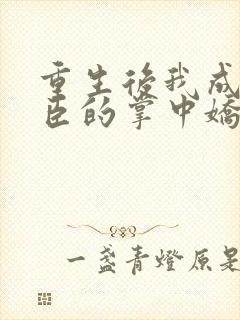 重生後我成
臣的掌中嬌
一盞青燈原是